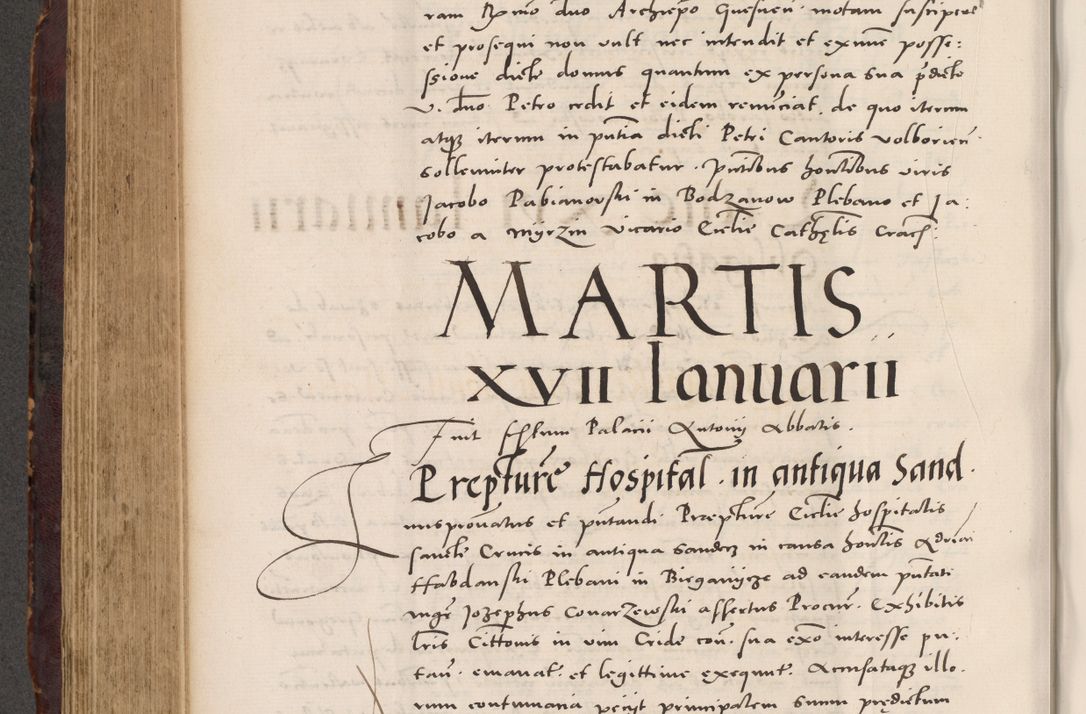 ram Rx̄mo dno Archiepo Quesnen. motam suscipere
et prosequi non vult nec intendit et eximie posse:
ssione dicte domus quantum ex persona sua p̄dicte
v. dno Petro cedit et eidem renuciat. de quo iterum
atq̨ iterum in pn̄tia dicti Petri Cantoris volborien
sollemniter protestabatur. Pn̄tibus hon̄tibus viris
Jacobo Pabianovski in Bodzanow Plebano et Ja:
cobo a Myrzin vicario Ecclie Cathęlis Crac
MARTIS
XVII Ianuarii
Fuit festum Palacii Antonij Abbatis.
Prepture Hospital. in antiqua Sand.
et putandi Prepture Ecclie hospitalis
sancte Crucis in antiqua Sandecz in causa hon̄lis Adriani
Habdanski Plebani in Bieganycze ad eandem pn̄tati
mgr̄ Jozephus Conarzewski assertus Procur. Exhibitis
lr̄is Citt̄onis in vim Cride con. sua exō interesse pu:
tan. emanat. et legittime exequut. Accusataq̨ illo.
rum contumacia petijt principalem suum prędictum